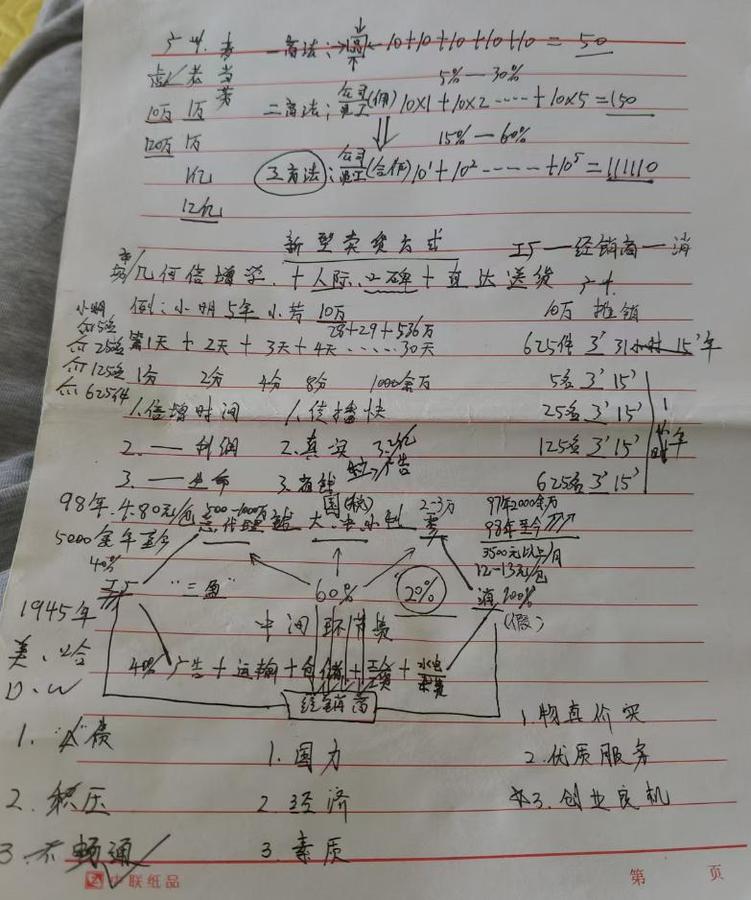 一商法: 10+10+10+10+10 = 50
5%—30%
10万 1万 二商法: 公司 员工 (佣) 10×1+10×2……+10×5=150
120万 1万 15%—60%
1亿 三商法: 公司 员工 (合作) 10¹+10²……+10⁵=111110
12亿
新型卖货方式 工厂—经销商—消
几何倍增学 + 人际口碑 + 直达送货
小明 例: 小明 5年 小芳 10万 10万 推销
28+29+536万
第1天 + 2天 + 3天 + 4天 ……30天 625件 3' 31小时 15' 年
1分 2分 4分 8分 1000余万 5名 3' 15'
1.倍增时间 1.传播快 25名 3' 15'
2.——利润 2.真实 125名 3' 15'
3.——生命 3. 625名 3' 15'
98年 4.80元/包 500-1000万 2-3万 97年2000余万
5000 总代理 98年至今
40% 3500元以上/月
工厂 "三盈" 60% 20% 12-13元/包
消 100%
(假)
1945年 中间环节费
美、 40% 广告+运输+仓储+工人工资+水电
D.W 经销商
1. 债 1.国力 1.物真价实
2.积压 2.经济 2.优质服务
3.不畅通 3.素质 3.创业良机
中联纸品 第 页